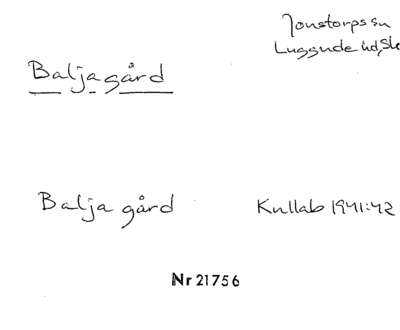 Jonstorps sn
Luggude hd, Sk
Baljagård
Balja gård Kullab 1941:42
Nr 21756